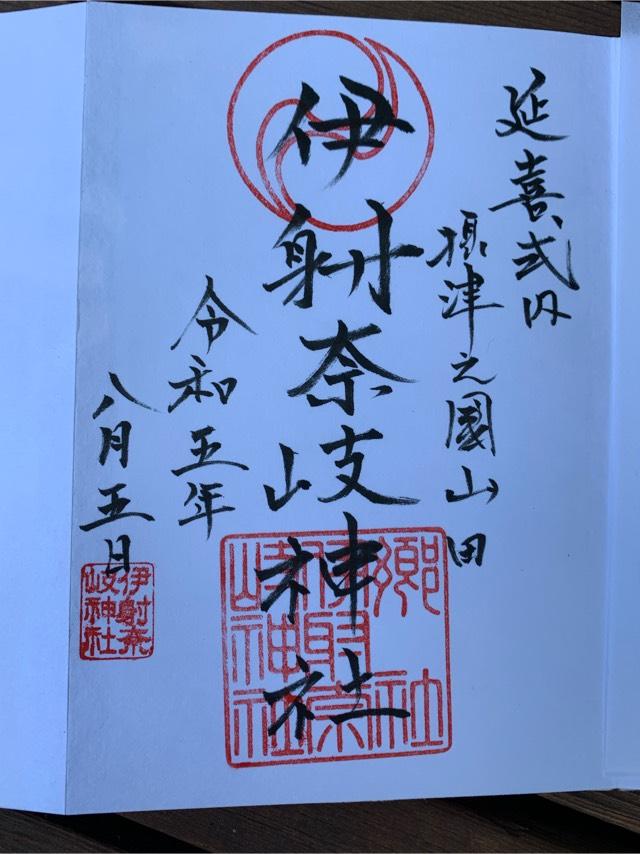 延喜式内
摂津之國山田
伊射奈岐神社
令和五年
八月五日
郷社
伊射奈
岐神社
伊射奈
岐神社